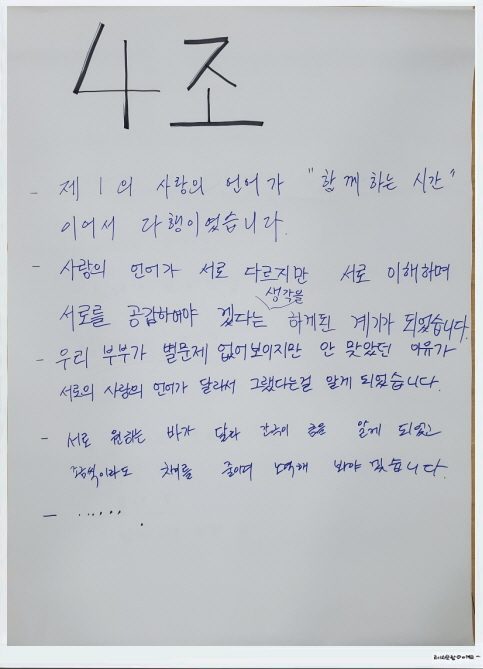 4조
- 제 1의 사랑의 언어가 "함께하는 시간"
이어서 다행이었습니다.
- 사랑의 언어가 서로 다르지만 서로 이해하며
서로를 공감하여야 겠다는 생각을 하게된 계기가 되었습니다.
- 우리 부부가 별문제 없어보이지만 안 맞았던 이유가
서로의 사랑의 언어가 달라서 그랬다는걸 알게 되었습니다.
- 서로 원하는 바가 달라 간극이 큼을 알게 되었고
조금씩이라도 차이를 줄이려 노력해 봐야 겠습니다.
- .......